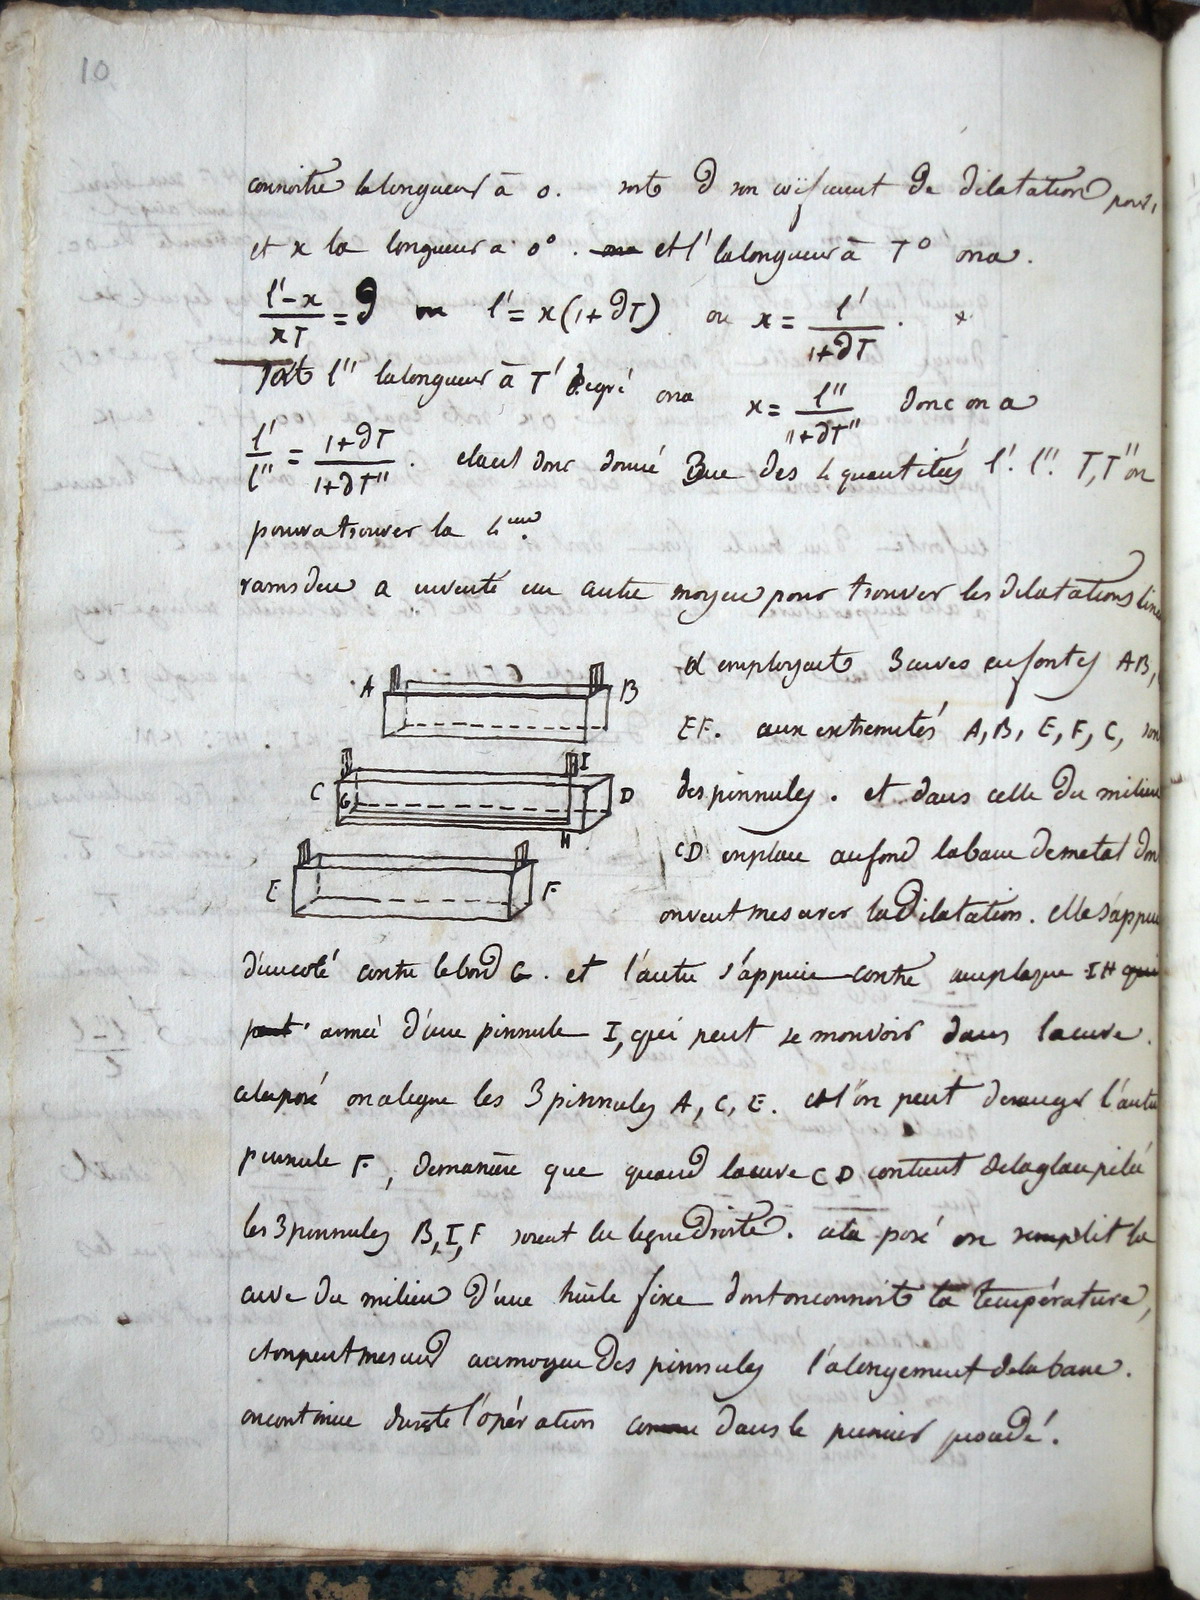 10
connoitre la longueur à 0. soit ∂ son coëficient de dilatation pour 1
et x la longueur à 0°. et l' la longueur à T° on a.
l'-x / xT = ∂ ou l' = x(1+∂T) ou x = l' / 1+∂T .
soit l'' la longueur à T' degré on a x = l'' / 1+∂T'' donc on a
l' / l'' = 1+∂T / 1+∂T'' . etant donc donné 3 que des 4 quantités l'. l''. T, T'' on
pourra trouver la 4eme.
ramsden a inventé un autre moyen pour trouver les dilatations line
il employait 3 cuves en fontes AB,
EF. aux extremités A, B, E, F, C, son
des pinnules. et dans celle du milieu
CD on place au fond la barre de metal don
on veut mesurer la dilatation. elle s'appui
d'un coté contre le bord G. et l'autre s'appuie contre une plaque IH qui
peut armée d'une pinnule I, qui peut se mouvoir dans la cuve.
cela posé on aligne les 3 pinnules A, C, E. et l'on peut deranger l'autre
pinnule F, de manière que quand la cuve CD contient de la glace pilée
les 3 pinnules B, I, F soient en ligne droite. cela posé on remplit la
cuve du milieu d'une huile fixe dont on connoit la température,
et on peut mesurer au moyen des pinnules l'alongement de la barre.
on continue du reste l'opération comme dans le premier procédé.
A B
C G I D H
E F